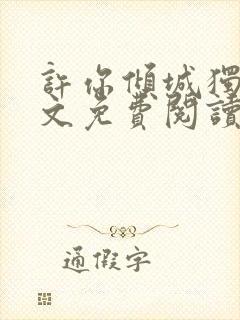 許你傾城獨
文免費閱讀
通假字